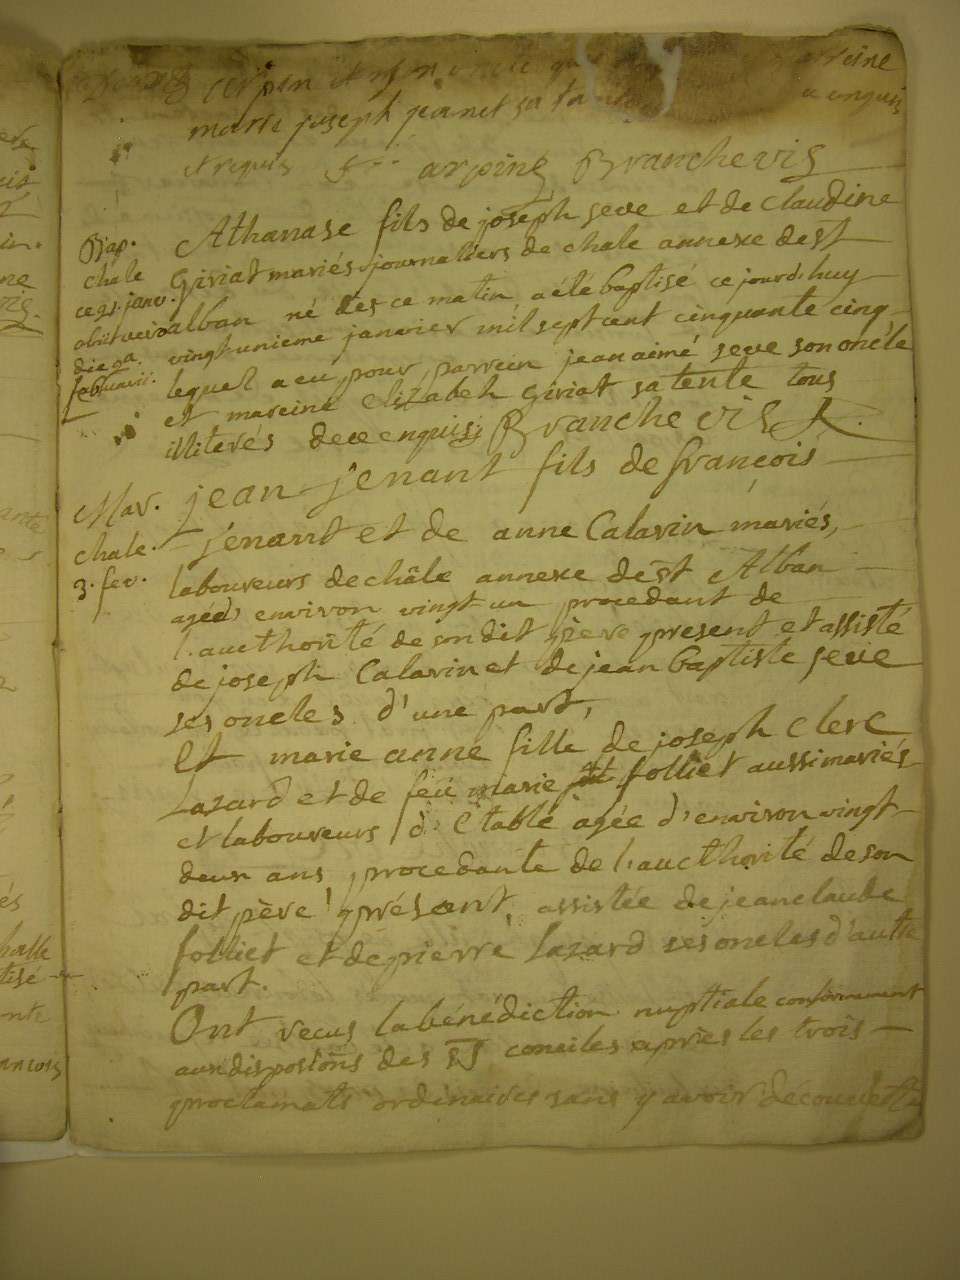 marie joseph jeanet sa
et requis arpin Branche vis
Athanase fils de joseph seve et de claudine
Bap.
chale
ce 21. janv.
obiit vero
die 9a
februarii.
giriat mariés journaliers de chale annexe de st
alban né dès ce matin, a été baptisé ce jourd'huy
vingtunieme janvier mil sept cent cinquante cinq
lequel a eu pour parrein jean aimé seve son oncle
et mareine elizabeh giriat sa tente tous
illiterés de ce enquis; Branche vis
Mar.
chale.
3. fev.
jean jenant fils de françois
jénant et de anne Calarin mariés,
laboureurs de châle annexe de st Alban
agéé environ vingt un procedant de
l'aucthorité de son dit père present et assisté
de joseph Calarin et de jean baptiste seve
ses oncles d'une part,
Et marie anne fille de joseph clerc
Lazard et de feüe marie folliet aussi mariés
et laboureurs d'Etable agée d'environ vingt
deux ans procedante de l'aucthorité de son
dit père présent, assistée de jean claude
folliet et de pierre Lazard ses oncles d'autte
part.
Ont recus la bénédiction nuptiale conformement
aux dispostons des SS conciles après les trois
proclamats ordinaires sans y avoir découvert